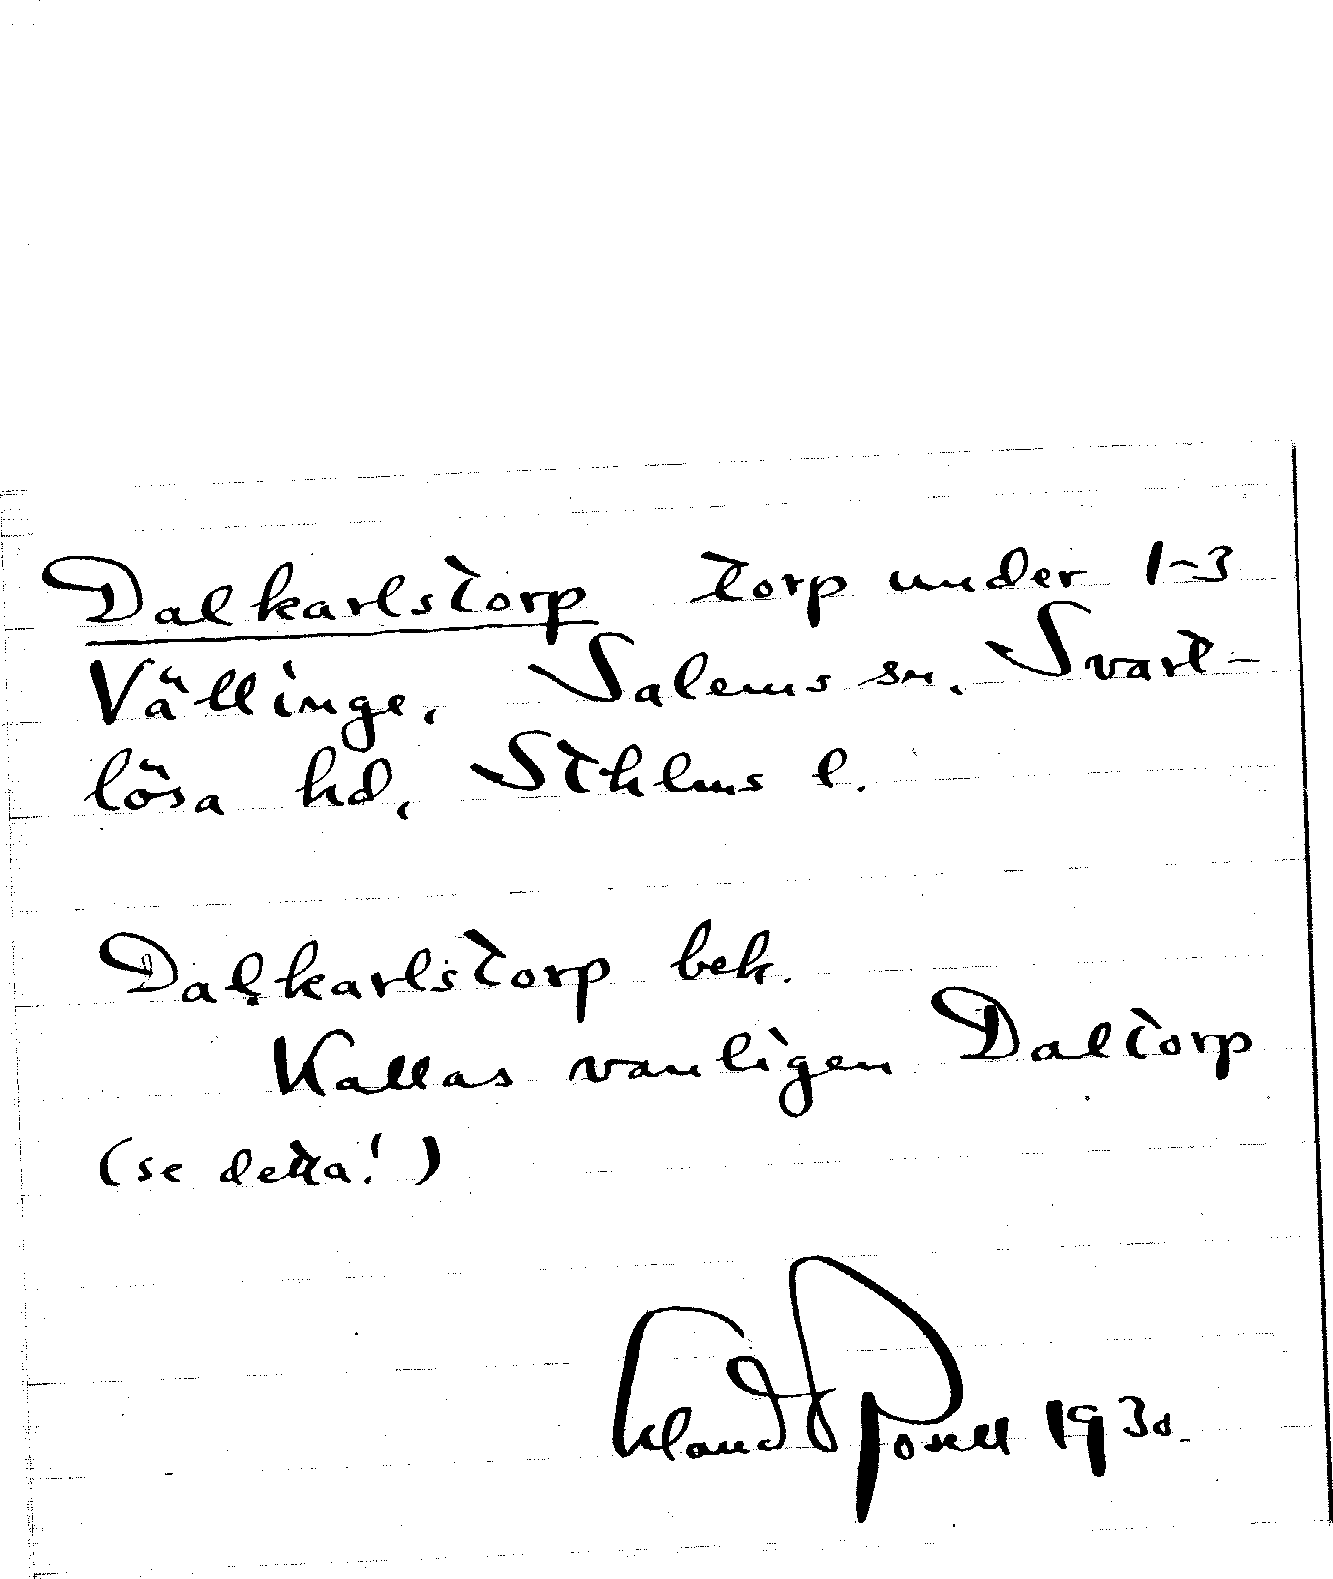 Dalkarlstorp torp under 1-3
Vällinge, Salems sn. Svart-
lösa hd, Sthlms l.
Dalkarlstorp bek.
Kallas vanligen Daltorp
(se detta!)
1930.